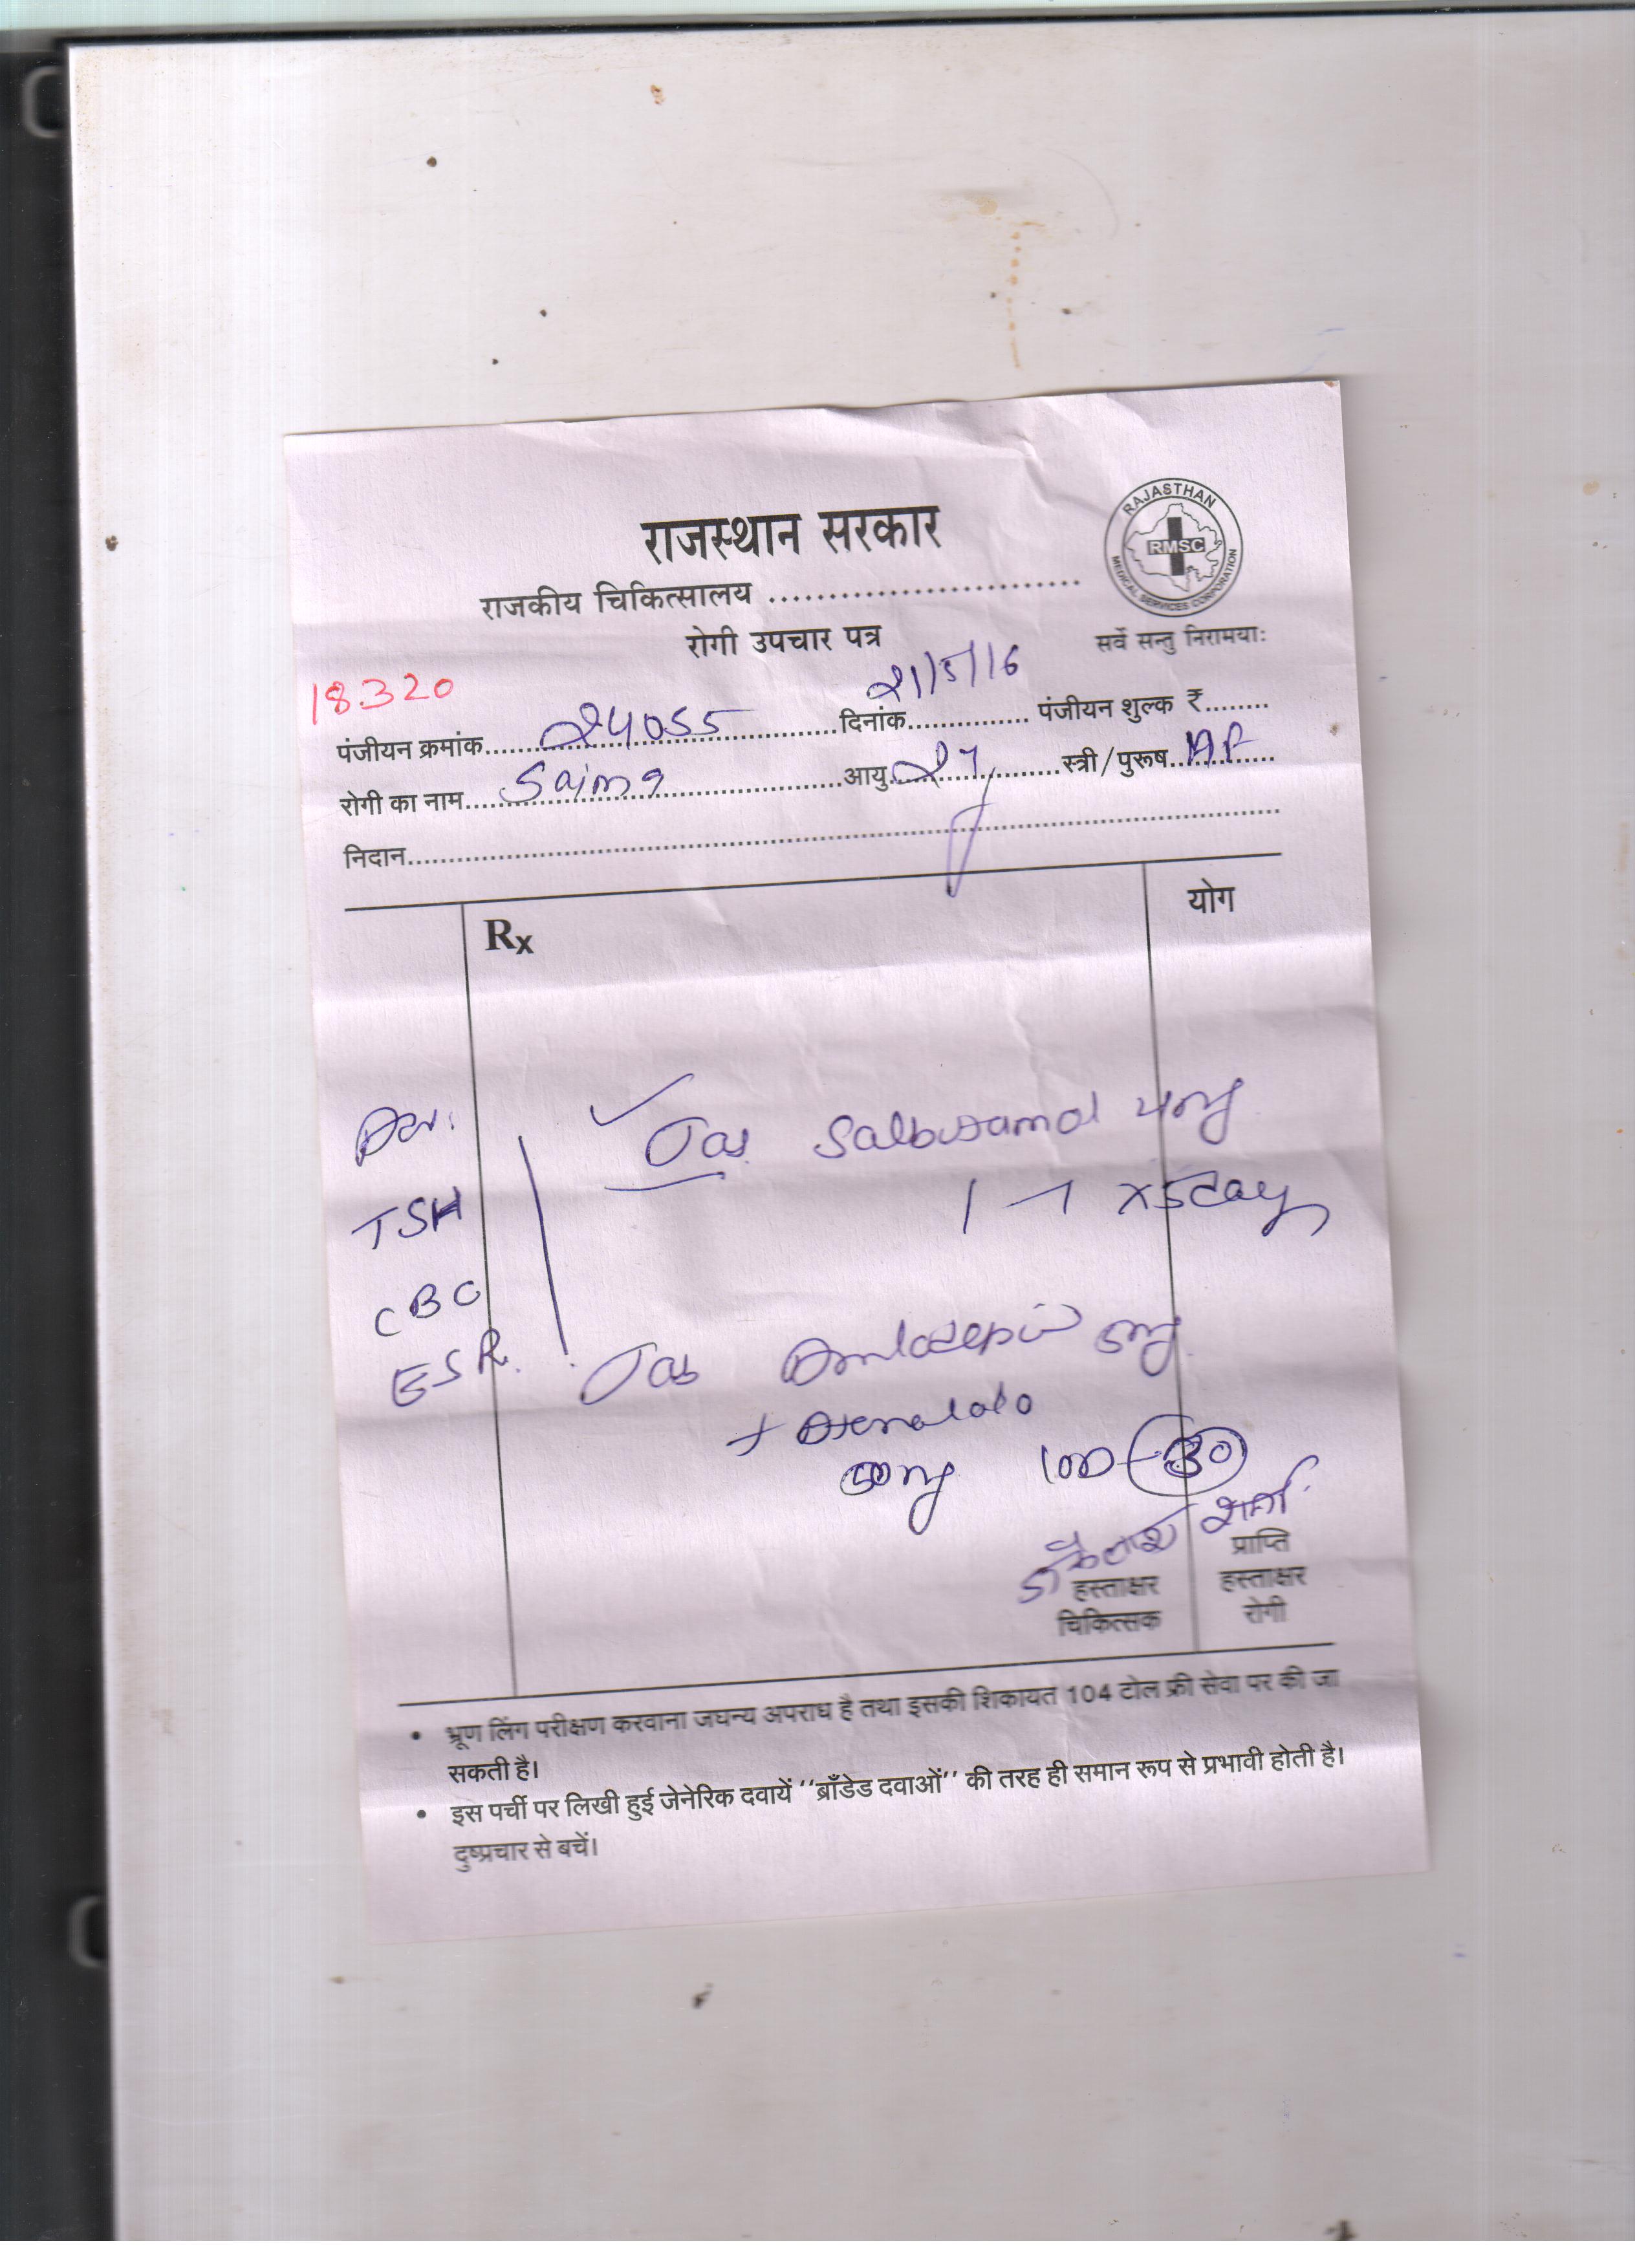 राजस्थान सरकार
RAJASTHAN
RMSC
MEDICAL SERVICES CORPORATION
राजकीय चिकित्सालय ..........................
रोगी उपचार पत्र
सर्वे सन्तु निरामयाः
18320
पंजीयन क्रमांक 24055 दिनांक 21/5/16 पंजीयन शुल्क ₹........
रोगी का नाम Saima आयु 27 स्त्री/पुरूष
निदान
Rx
योग
Tab Salbutamol 4mg
1 - 1 x 5 day
TSH
CBC
ESR
Tab Amlodepin 5mg
+ Atenalolo
50mg 1OD 30
डॉ कैलाश शर्मा
हस्ताक्षर
चिकित्सक
प्राप्ति
हस्ताक्षर
रोगी
• भ्रूण लिंग परीक्षण करवाना जघन्य अपराध है तथा इसकी शिकायत 104 टोल फ्री सेवा पर की जा
सकती है।
• इस पर्ची पर लिखी हुई जेनेरिक दवायें ‘‘ब्राँडेड दवाओं’’ की तरह ही समान रूप से प्रभावी होती है।
दुष्प्रचार से बचें।